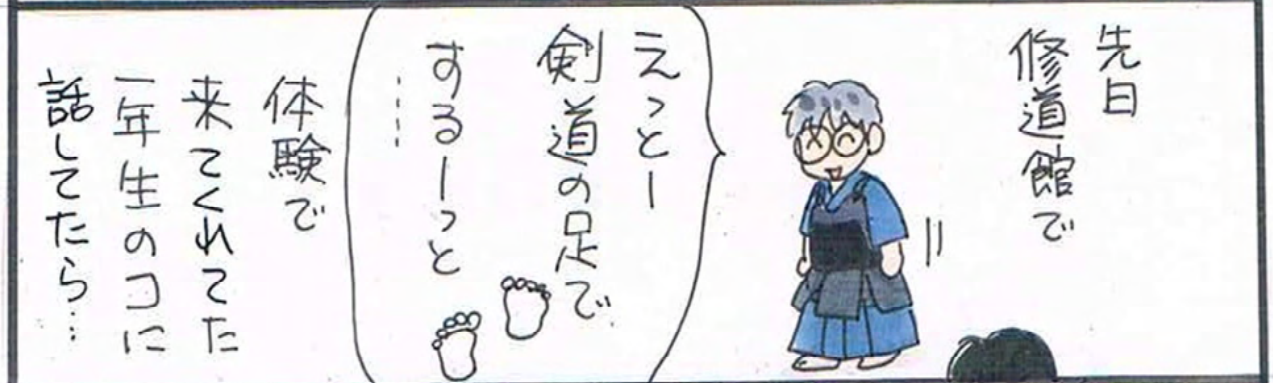 先日
修道館で
えっとー
剣道の足で
するーっと
……
体験で
来てくれてた
一年生のコに
話してたら…